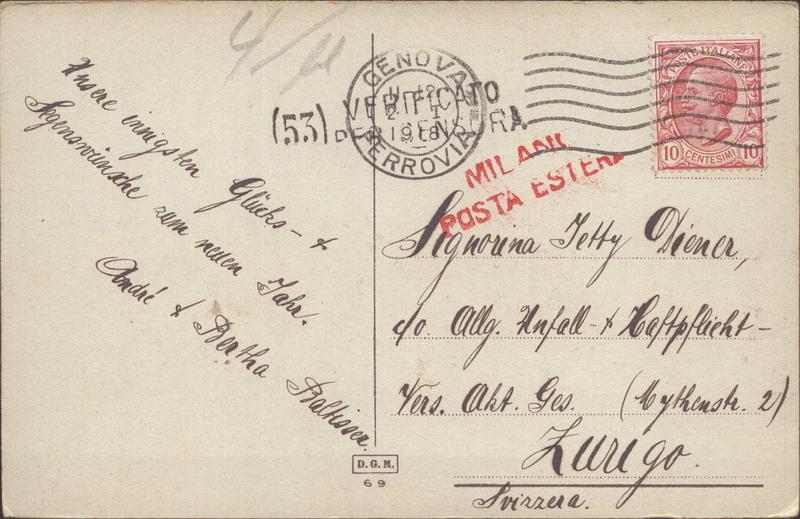 4/
Unsere innigsten Glücks- &
Segenswünsche zum neuen Jahr.
André & Bertha
D.G.M.
69
GENOVA
FERROVIA
(53) VERIFICATO
CENSURA
MILANO
POSTA ESTERA
POSTE ITALIANE
10 CENTESIMI 10
Signorina Jetty Diener,
c/o. Allg. Unfall- & Haftpflicht-
Vers. Akt. Ges. (Mythenstr. 2)
Zurigo.
Svizzera.